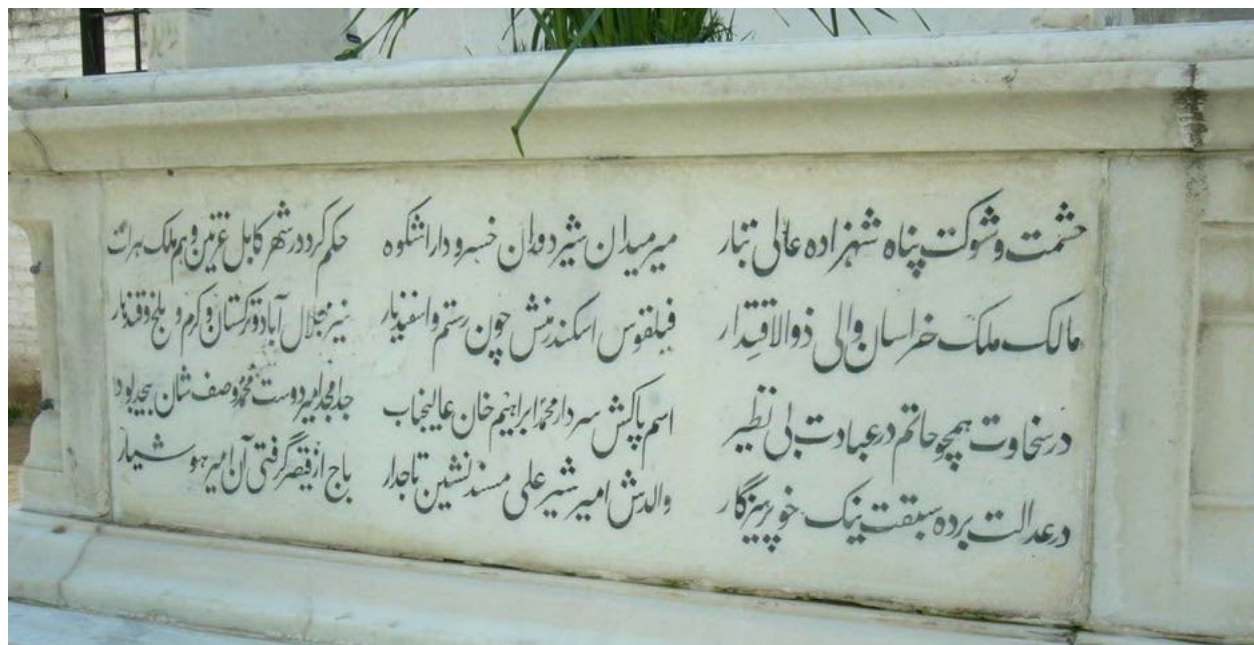 حشمت و شوکت پناه شهزاده عالی تبار
مالک ملک خراسان والی ذوالاقتدار
در سخاوت همچو حاتم در عبادت بی نظیر
در عدالت برده سبقت نیک خو پرهیزگار
میر میدان شیر دوران خسرو دارا شکوه
فیلقوس اسکندر منش چون رستم و اسفندیار
اسم پاکش سردار محمد ابراهیم خان عالیجناب
والدش امیر شیر علی مسند نشین تاجدار
حکم کرد در شهر کابل غزنین و هم ملک هرات
نیز جلال آباد و ترکستان و کرم و بلخ و قندهار
جد امجد امیر دوست محمد وصف شان بیحد بود
باج از قیصر گرفتی آن امیر هوشیار